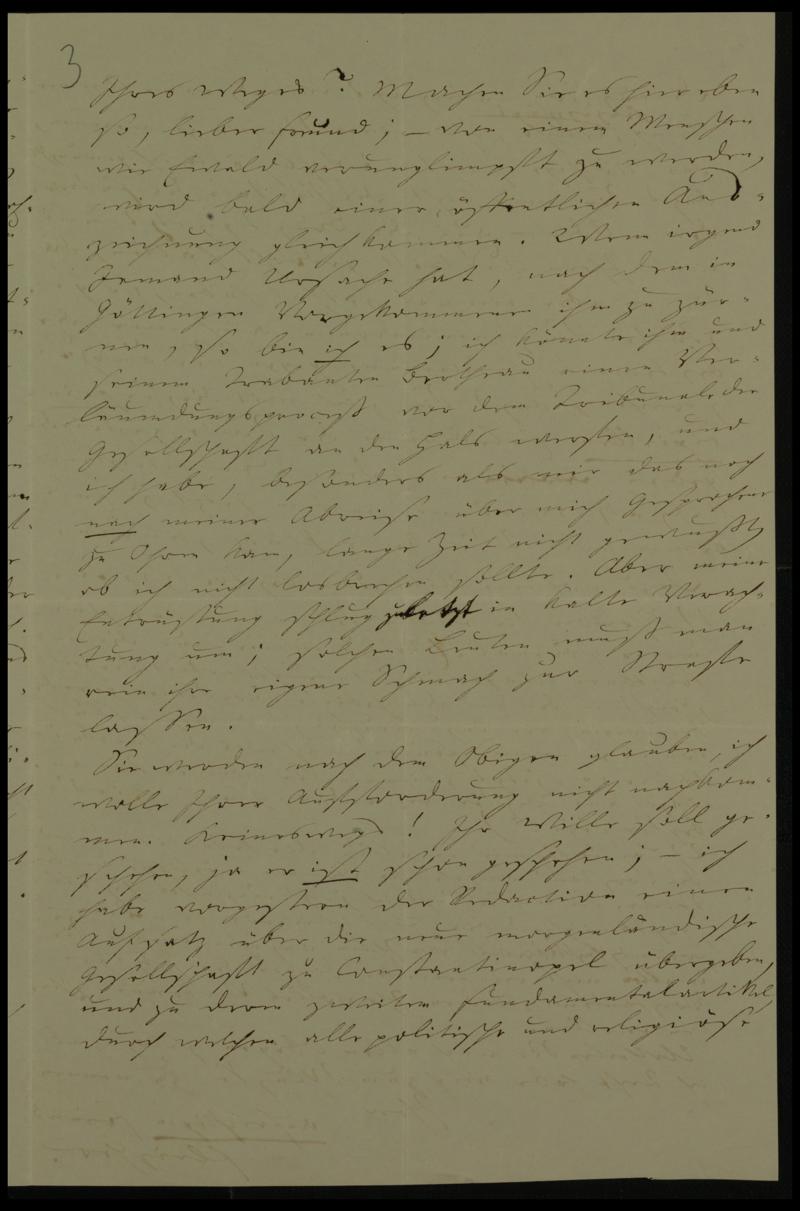 3
Ihres Weges? Machen Sie es hier eben
so, lieber Freund; – von einem Menschen
wie Ewald verunglimpft zu werden,
wird bald einer öffentlichen Aus-
zeichnung gleichkommen. Wenn irgend
Jemand Ursache hat, nach dem in
Göttingen Vorgekommenen ihm zu zür-
nen, so bin ich es; ich könnte ihm und
seinem Trabanten Bertheau einen Ver-
läumdungsproceß vor dem Tribunale der
Gesellschaft an den Hals werfen, und
ich habe, besonders als mir das noch
nach meiner Abreise über mich Gesprochene
zu Ohren kam, lange Zeit nicht gewußt,
ob ich nicht losbrechen sollte. Aber meine
Entrüstung schlug zuletzt in kalte Verach-
tung um; solchen Leuten muß man
rein ihre eigene Schmach zur Strafe
lassen.
Sie werden nach dem Obigen glauben, ich
wolle Ihrer Aufforderung nicht nachkom-
men. Keineswegs! Ihr Wille soll ge-
schehen, ja er ist schon geschehen; – ich
habe vorgestern der Redaction einen
Aufsatz über die neue morgenländische
Gesellschaft zu Constantinopel übergeben,
und zu deren zweiten Fundamentalartikel,
durch welchen alle politische und religiöse